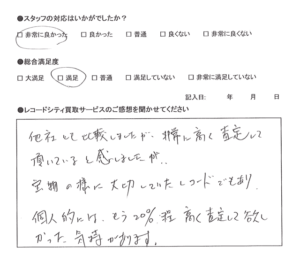 ●スタッフの対応はいかがでしたか?
□非常に良かった □良かった □普通 □良くない □非常に良くない
●総合満足度
□大満足 □満足 □普通 □満足していない □非常に満足していない
記入日: 年 月 日
●レコードシティ買取サービスのご感想を聞かせてください
他社しも比較しましたが、割と高く査定して
頂いていると感じましたが、
宝物の様に大切にしていたレコードでもあり、
個人的には、もう20%程高く査定して欲し
かった気持があります。